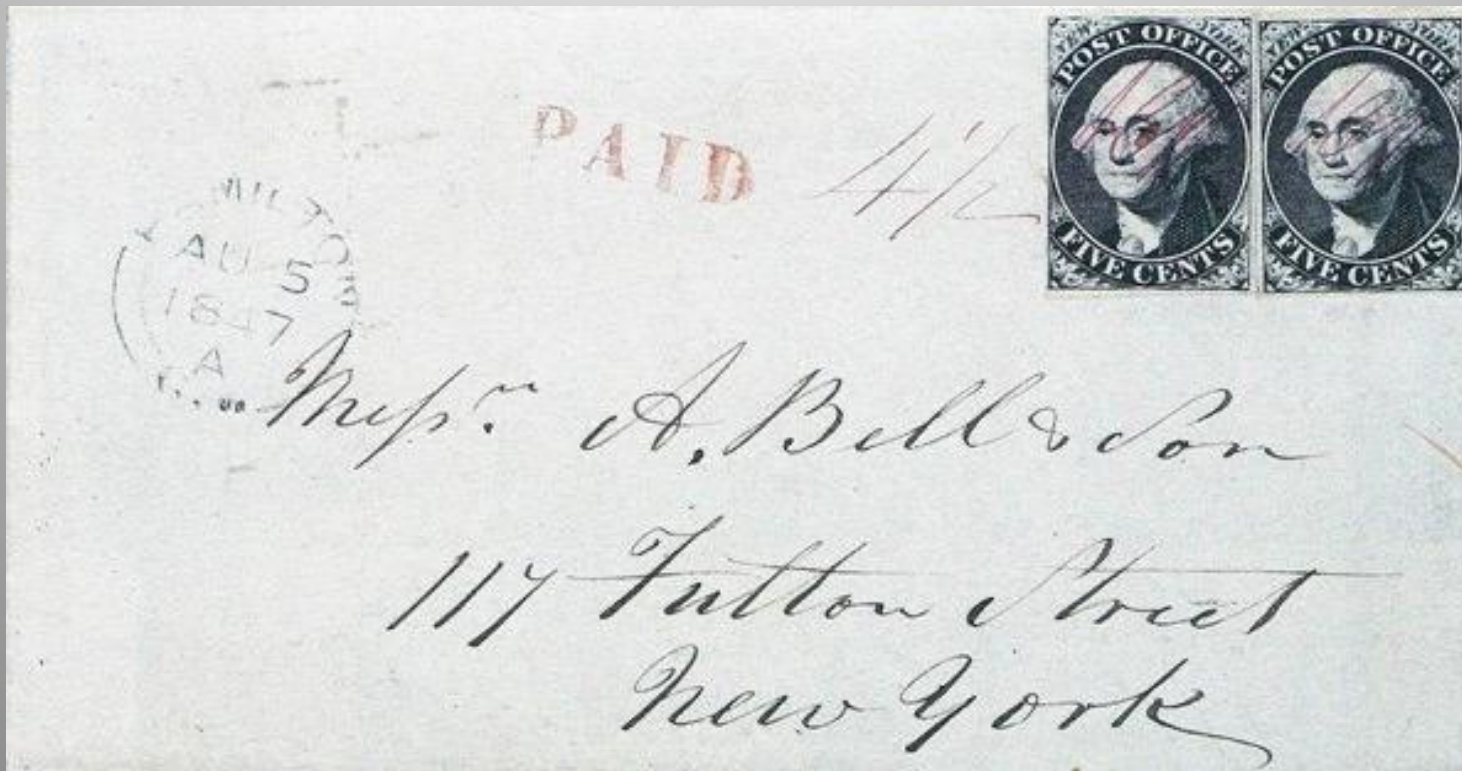 POST OFFICE
FIVE CENTS
POST OFFICE
FIVE CENTS
PAID
4½
AU 5
1847
A
Messrs. A. Bell & Son
117 Fulton Street
New York